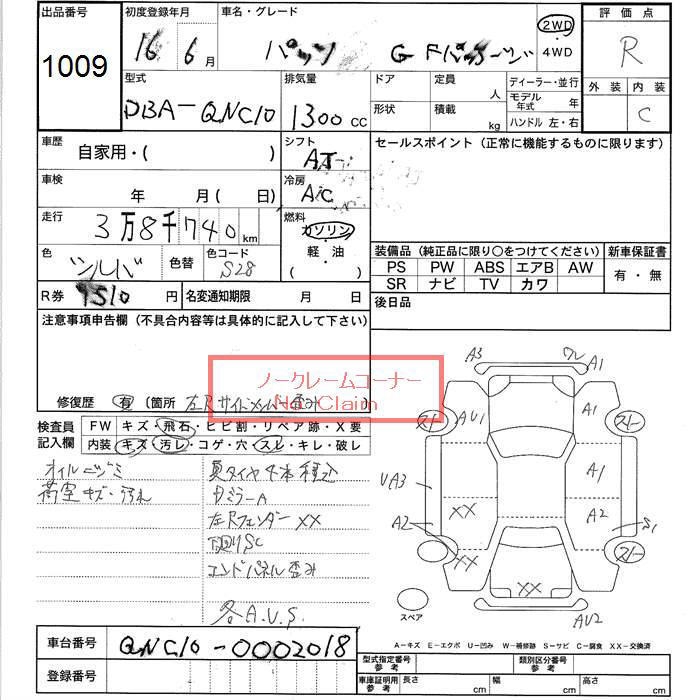 出品番号 初度登録年月 車名・グレード 評価点
1009 16年 6月 パッソ G Fパッケージ 2WD R
4WD
型式 排気量 ドア 定員 ディーラー・並行 外装 内装
DBA-QNC10 1300cc 人 モデル年式 年 C
形状 積載 kg ハンドル 左・右
車歴 自家用・( ) シフト AT セールスポイント(正常に機能するものに限ります)
車検 年 月(日) 冷房 AC
走行 3万8千740km 燃料 ガソリン
軽油
( )
色 シルバ 色替 色コード S28
装備品(純正品に限り○をつけてください) 新車保証書
PS PW ABS エアB AW 有・無
SR ナビ TV カワ
R券 9510円 名変通知期限 月 日 後日品
注意事項申告欄(不具合内容等は具体的に記入して下さい)
ノークレームコーナー
No Claim
修復歴 有 (箇所 左Rサイドメンバー歪み
検査員 FW キズ・飛石・ヒビ割・リペア跡・X要
記入欄 内装 キズ・汚レ・コゲ・穴・スレ・キレ・破レ
オイルニジミ
荷室キズ・汚れ
夏タイヤ4本積込
ミラーA
左Rフェンダー XX
下廻りSC
エンドパネル歪み
各A.U.S.
A3 ワレ A1
スレ AU1 A1 スレ
UA3 A1
A2 XX A2 S1
XX XX スレ
スペア AU2
A-キズ E-エクボ U-凹み W-補修跡 S-サビ C-腐食 XX-交換済
車台番号 QNC10-0002018
登録番号
型式指定番号 参考 類別区分番号 参考
車庫証明用 参考 長さ cm 幅 cm 高さ cm